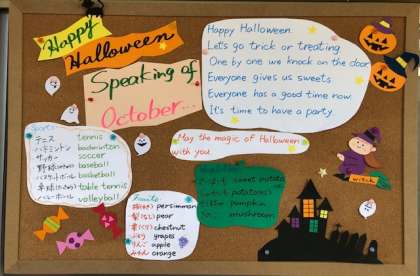 Happy
Halloween
Speaking of
October...
Happy Halloween
Let's go trick or treating
One by one we knock on the door
Everyone gives us sweets
Everyone has a good time now
It's time to have a party
May the magic of Halloween
with you
Sports
テニス tennis
バドミントン badminton
サッカー soccer
野球 baseball
バスケットボール basketball
卓球 table tennis
バレーボール volleyball
Fruits
柿(かき) persimmon
梨(なし) pear
栗(くり) chestnut
ぶどう grapes
りんご apple
みかん orange
sweet potato
potatoes
pumpkin
mushroom
witch